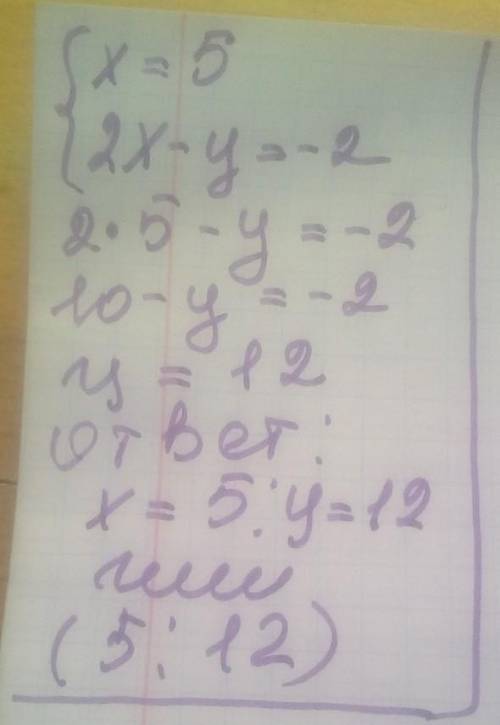 { x = 5
2x - y = -2
2 · 5 - y = -2
10 - y = -2
y = 12
Ответ:
x = 5; y = 12
или
(5; 12)